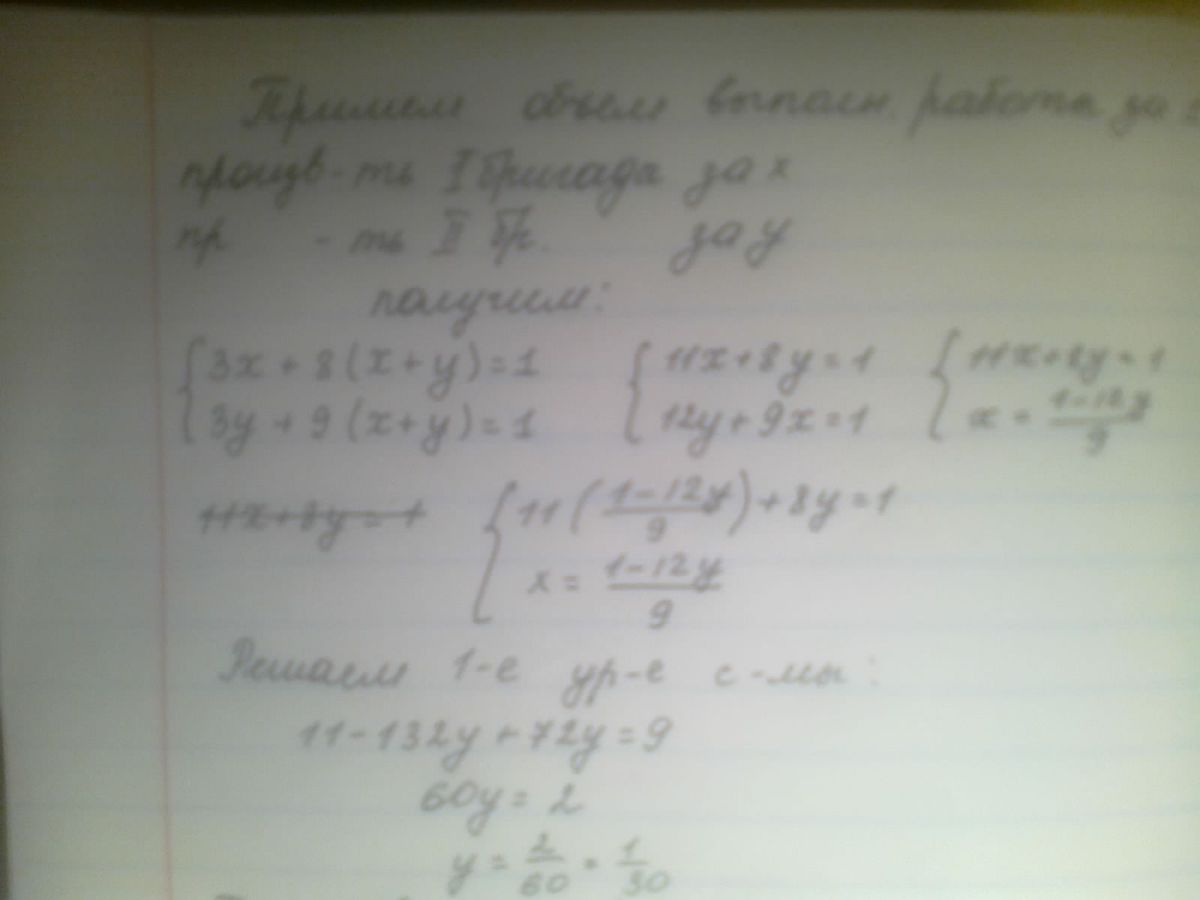 Примем объем выполн. работы за 1
произв-ть I бригады за x
пр - ть II бр. за y
получим:
{3x + 8(x+y) = 1 {11x+8y=1 {11x+8y=1
{3y + 9(x+y) = 1 {12y+9x=1 {x = \frac{1-12y}{9}
~~11x+8y=1~~ {11(\frac{1-12y}{9})+8y=1
{x = \frac{1-12y}{9}
Решаем 1-е ур-е с-мы:
11-132y+72y=9
60y = 2
y = \frac{2}{60} = \frac{1}{30}